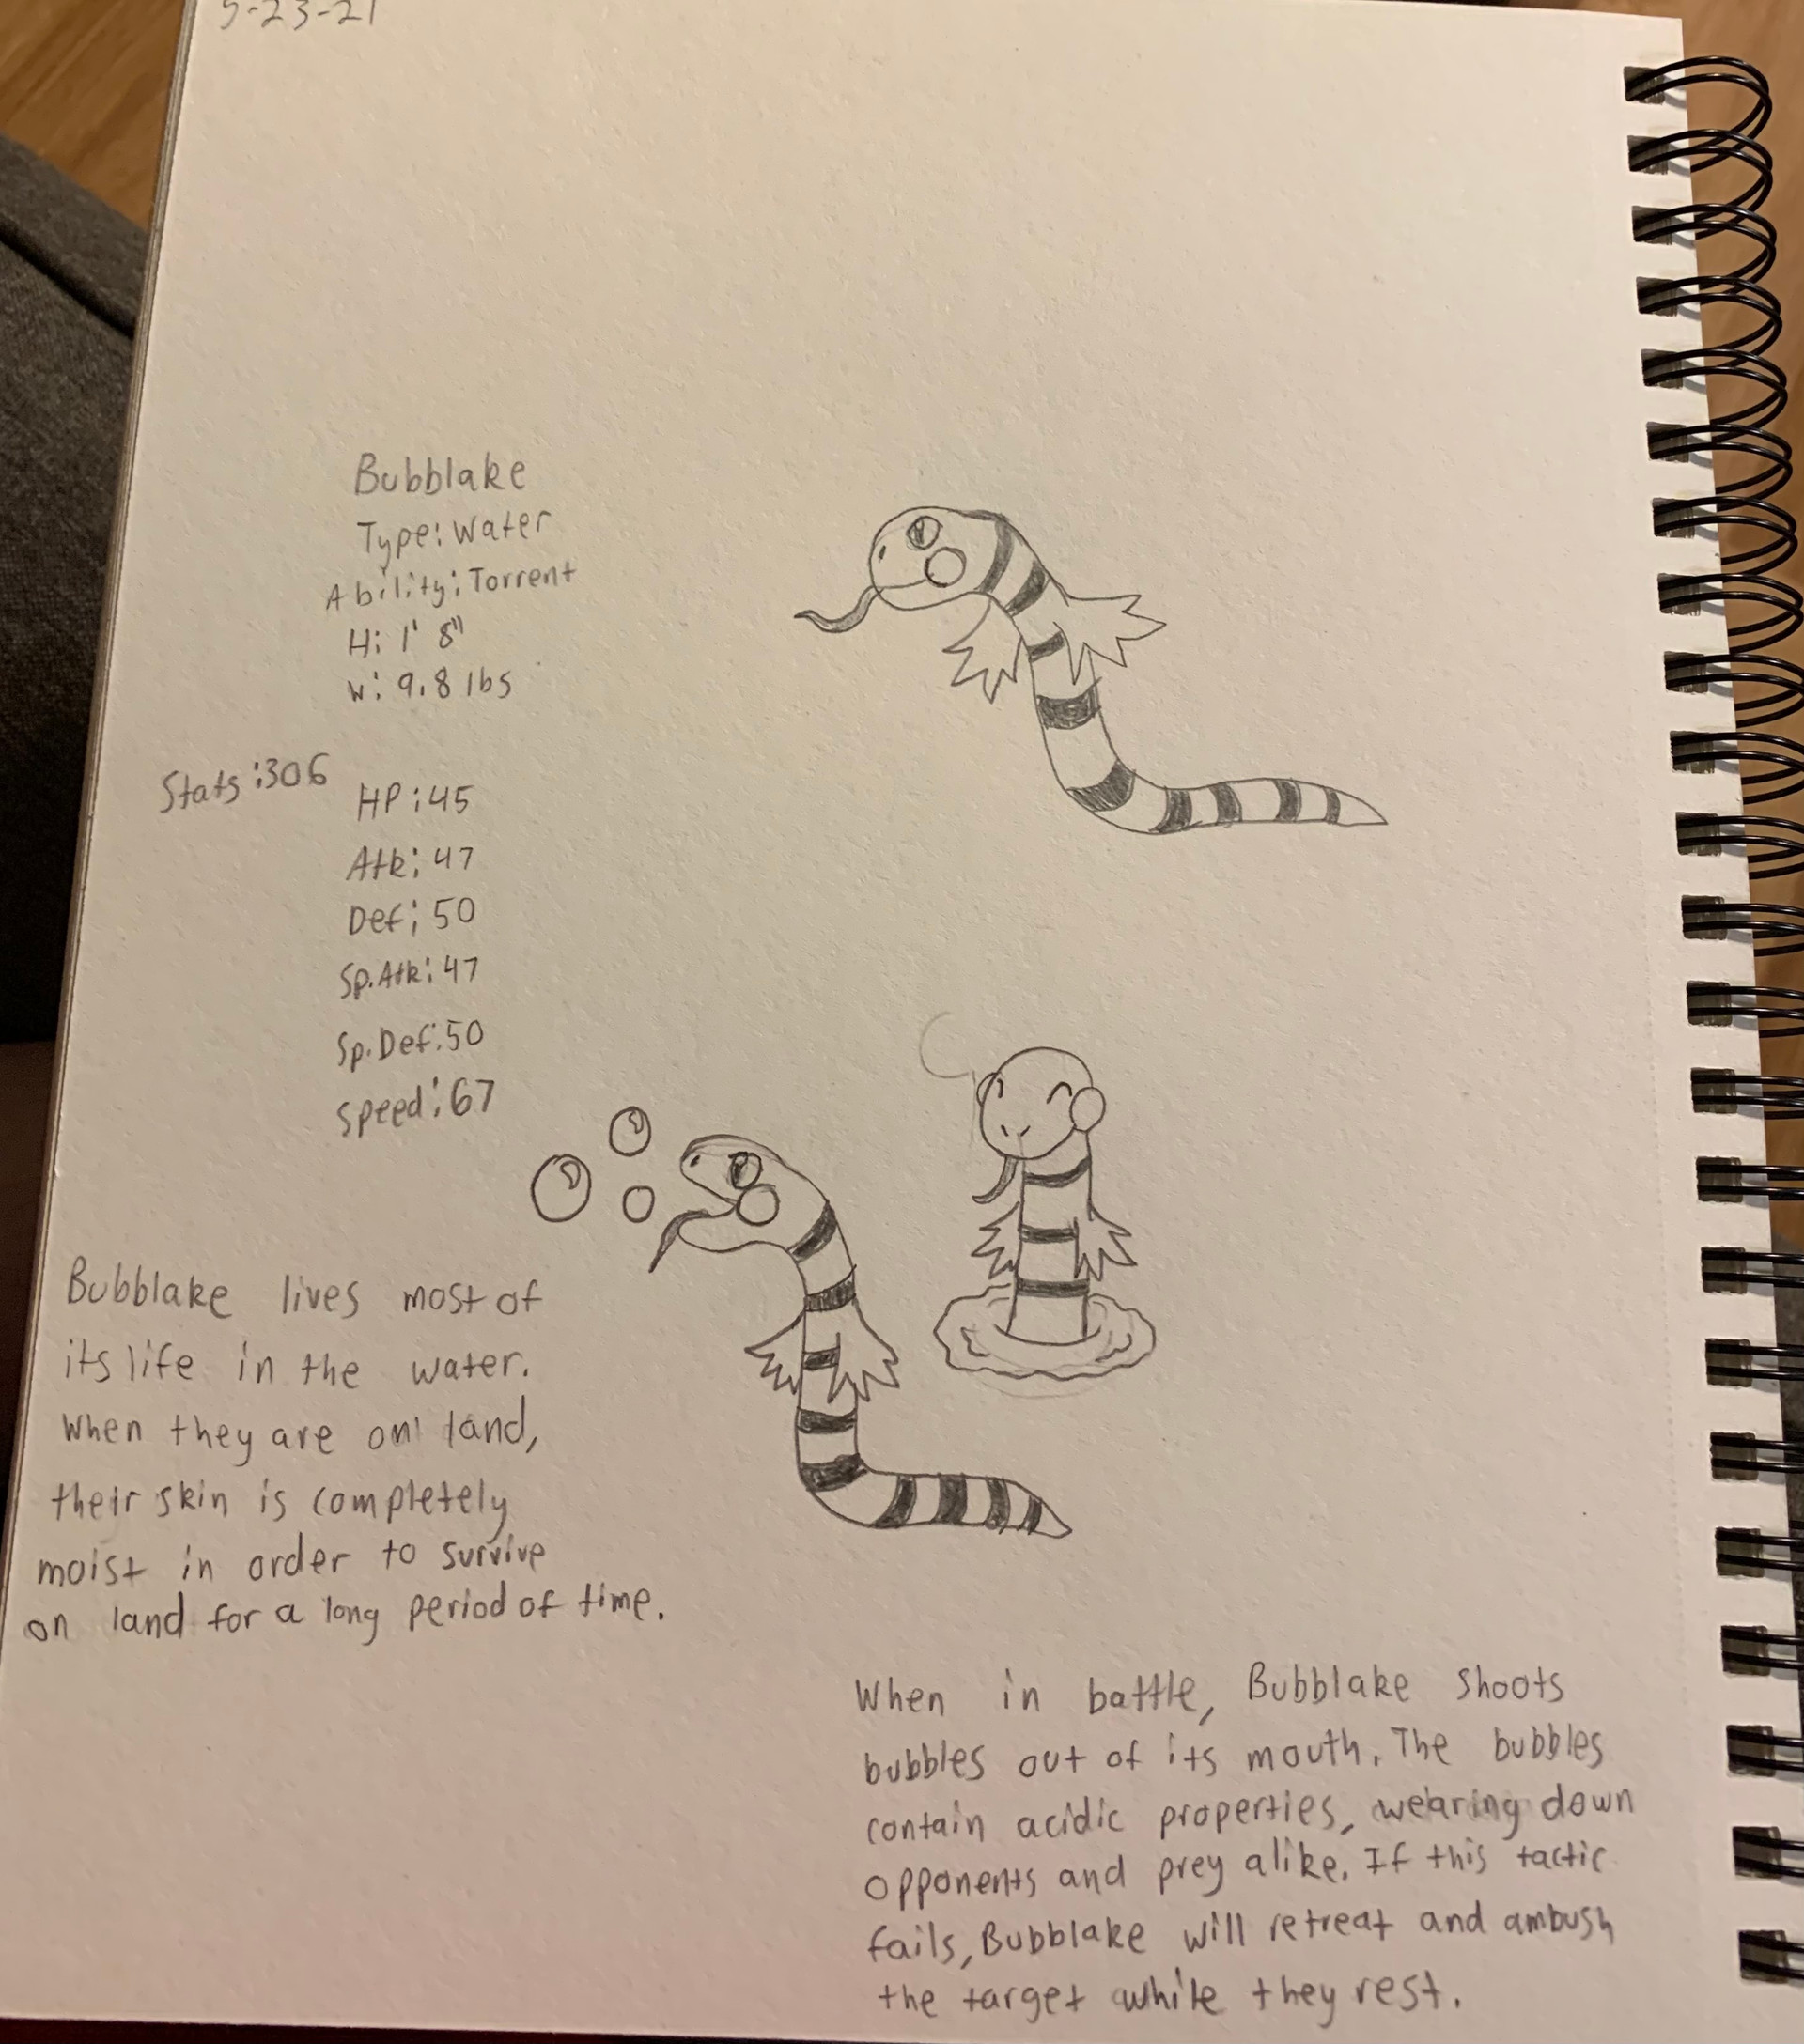 5-23-21
Bubblake
Type: Water
Ability: Torrent
H: 1' 8"
W: 9.8 lbs
Stats: 306
HP: 45
Atk: 47
Def: 50
Sp.Atk: 47
Sp.Def: 50
Speed: 67
Bubblake lives most of
its life in the water.
When they are on land,
their skin is completely
moist in order to survive
on land for a long period of time.
When in battle, Bubblake shoots
bubbles out of its mouth. The bubbles
contain acidic properties, wearing down
opponents and prey alike. If this tactic
fails, Bubblake will retreat and ambush
the target while they rest.